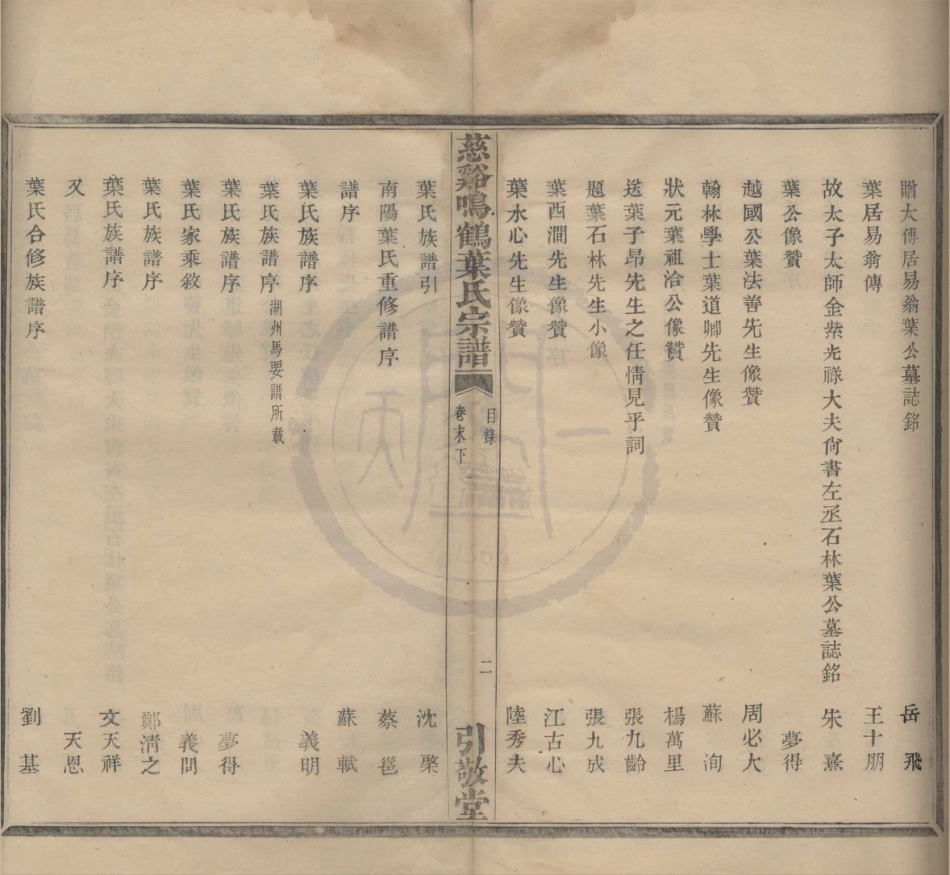 贈大傅居易翁葉公墓誌銘 岳飛
葉居易翁傳 王十朋
故太子太師金紫光祿大夫尙書左丞石林葉公墓誌銘 朱熹
葉公像贊 夢得
越國公葉法善先生像贊 周必大
翰林學士葉道卿先生像贊 蘇洵
狀元葉祖洽公像贊 楊萬里
送葉子昂先生之任情見乎詞 張九齡
題葉石林先生小像 張九成
葉西澗先生像贊 江古心
葉水心先生像贊 陸秀夫
慈谿鳴鶴葉氏宗譜 目錄 卷末下 二 引敬堂
葉氏族譜引 沈棨
南陽葉氏重修譜序 蔡邕
譜序 蘇軾
葉氏族譜序 義明
葉氏族譜序 湖州馬要譜所載
葉氏族譜序 夢得
葉氏家乘敘 義問
葉氏族譜序 鄭清之
葉氏族譜序 文天祥
又 王天恩
葉氏合修族譜序 劉基